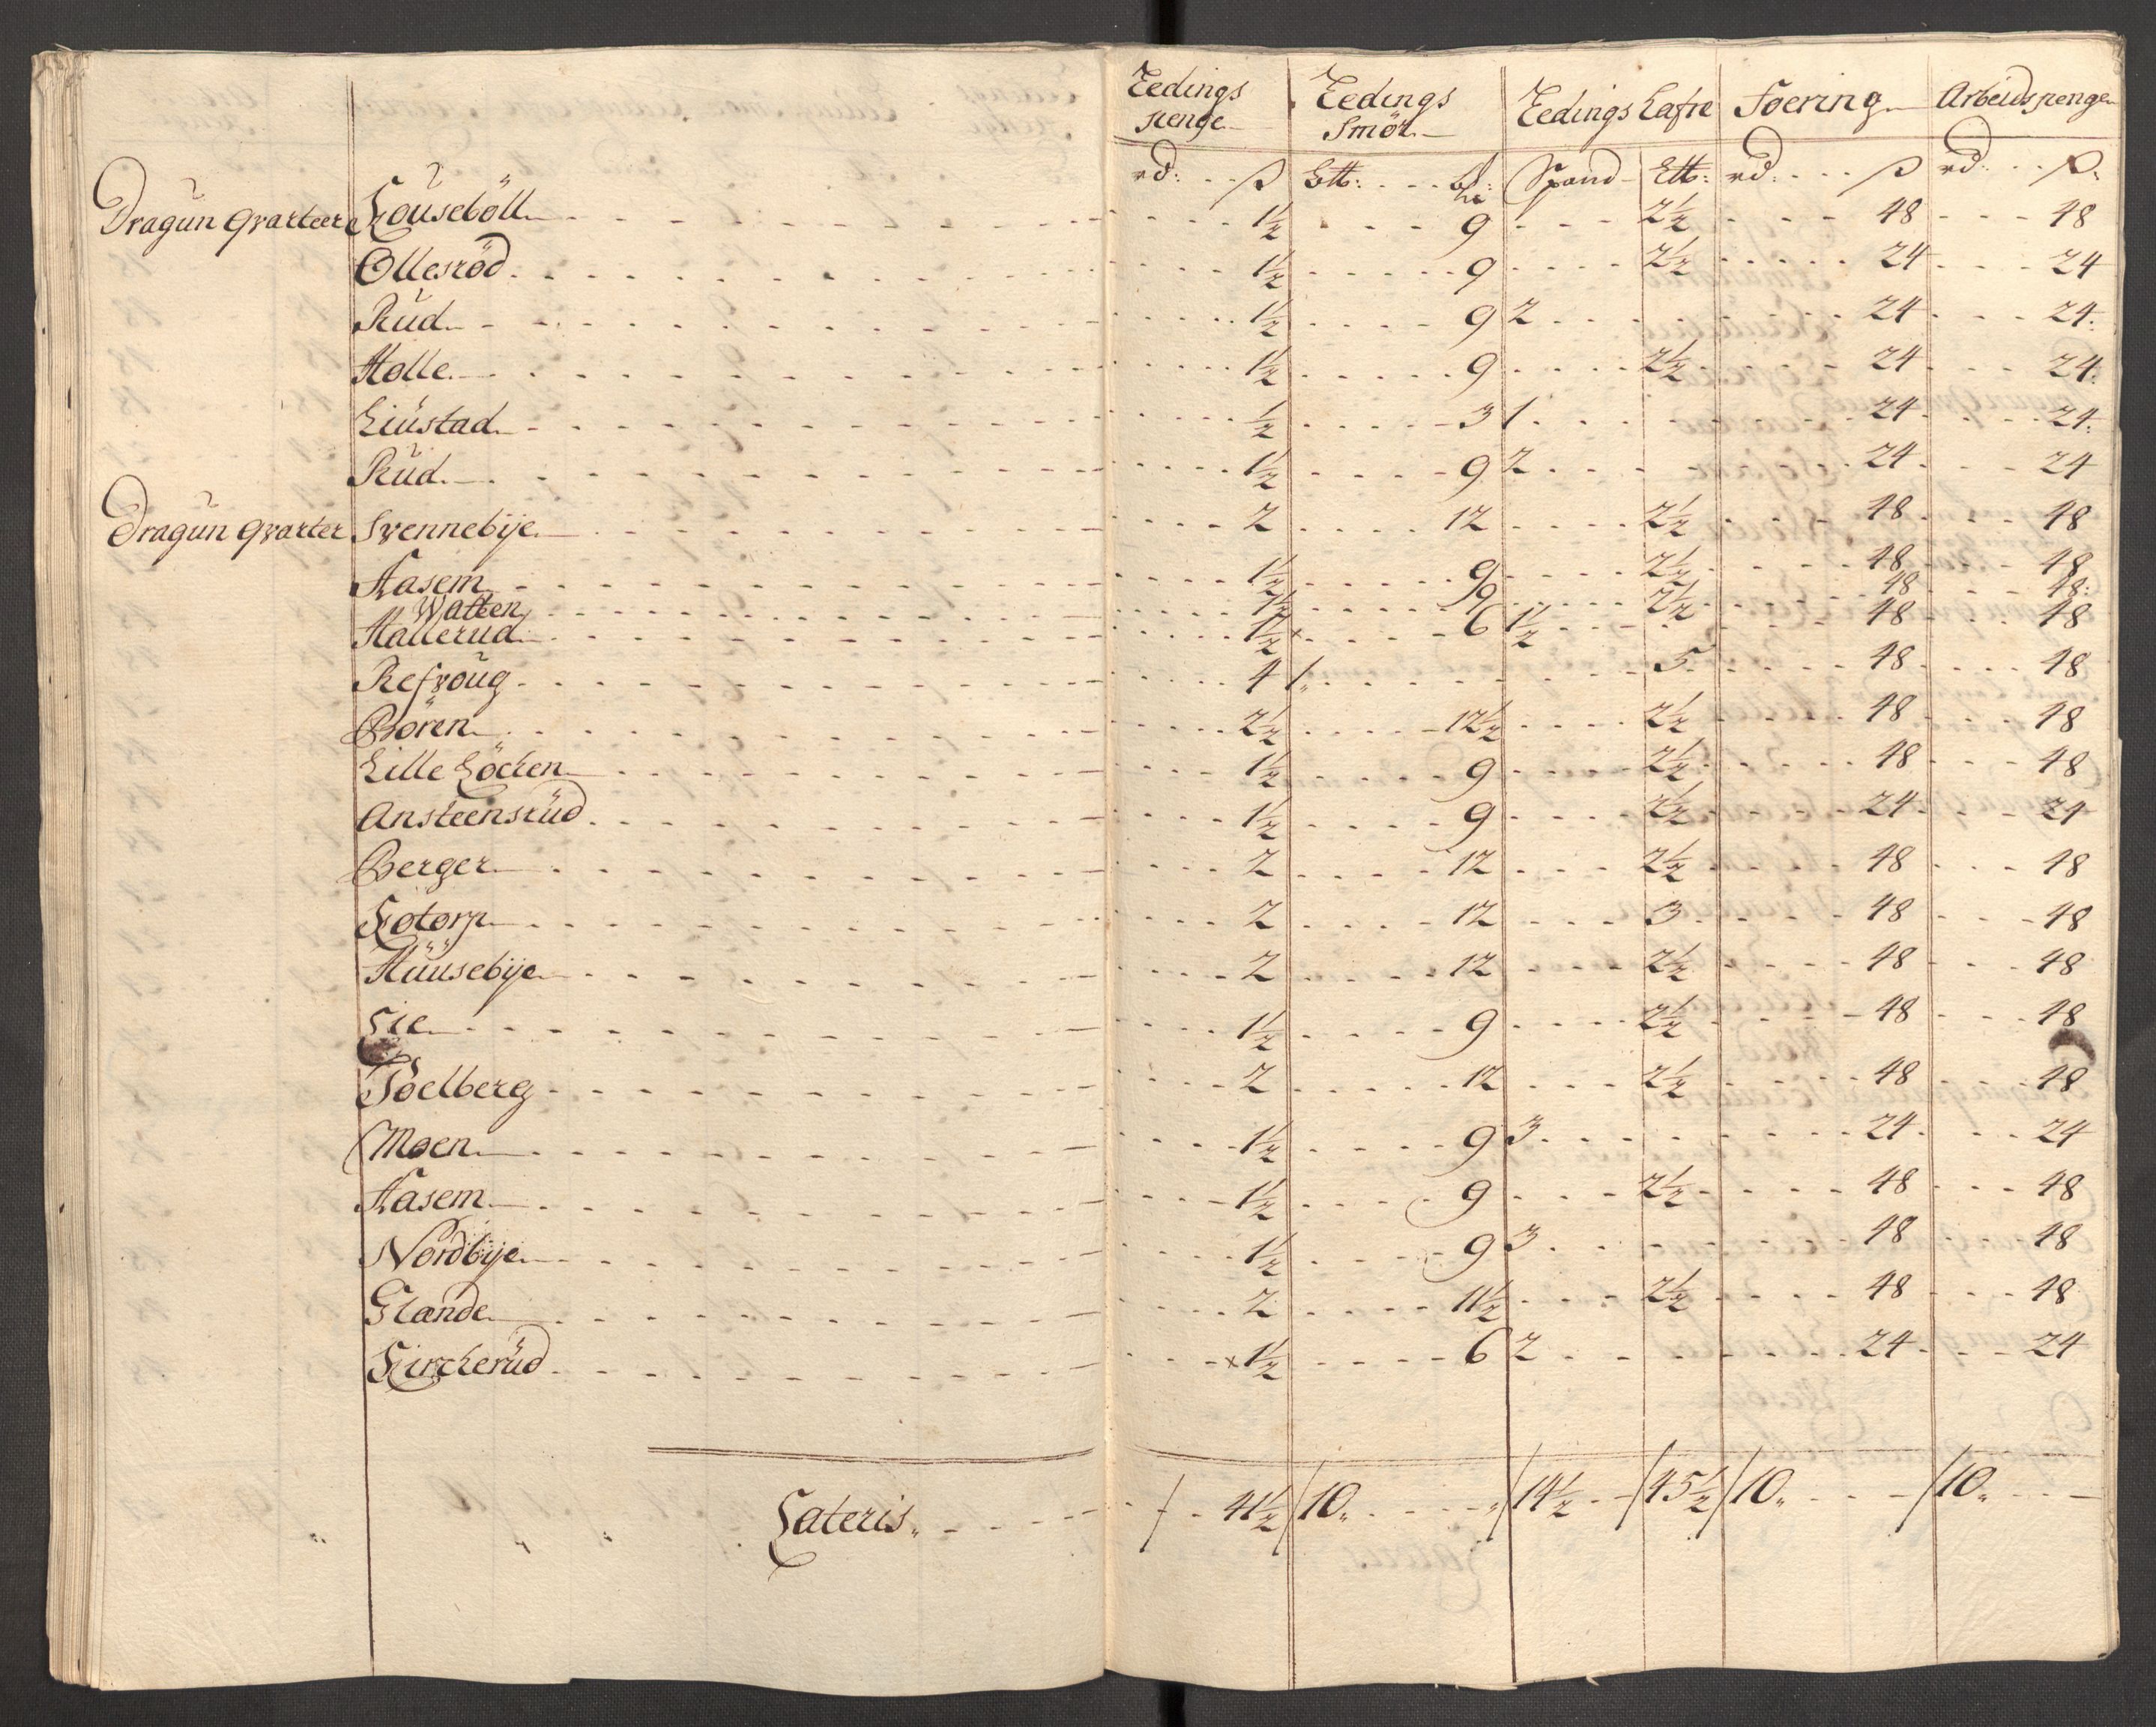 Leedings penge Leedings Smör Leedings Hafre Foering Arbeidspenge
rd: ß Ltt: bl: Spand Ltt: rd: ß rd: ß
Dragun Qvarteer Lousebøll 1½ 9 2½ 48 48
Ollesröd 1½ 9 2½ 24 24
Rud 1½ 9 2 24 24
Holle 1½ 9 2½ 24 24
Liustad ½ 3 1 24 24
Rud 1½ 9 2 24 24
Dragun Qvarter Svennebÿe 2 12 2½ 48 48
Aasem 1½ 9 2½ 48 48
Watten 1½ 9 2½ 48 48
Hallerud 1½ 6 1½ 48 48
Refvoug 4 1 5 48 48
Bören 2½ 12½ 2½ 48 48
Lille Löcken 1½ 9 2½ 48 48
Ansteensrud 1½ 9 2½ 24 24
Berger 2 12 2½ 48 48
Lotorp 2 12 3 48 48
Huusebÿe 2 12 2½ 48 48
Lie 1½ 9 2½ 48 48
Soelberg 2 12 2½ 48 48
Moen 1½ 9 3 24 24
Aasem 1½ 9 2½ 48 48
Nordbÿe 1½ 9 3 48 48
Glande 2 11½ 2½ 48 48
Kirckerud 1½ 6 2 24 24
Lateris 41½ 10 14½ 45½ 10 10